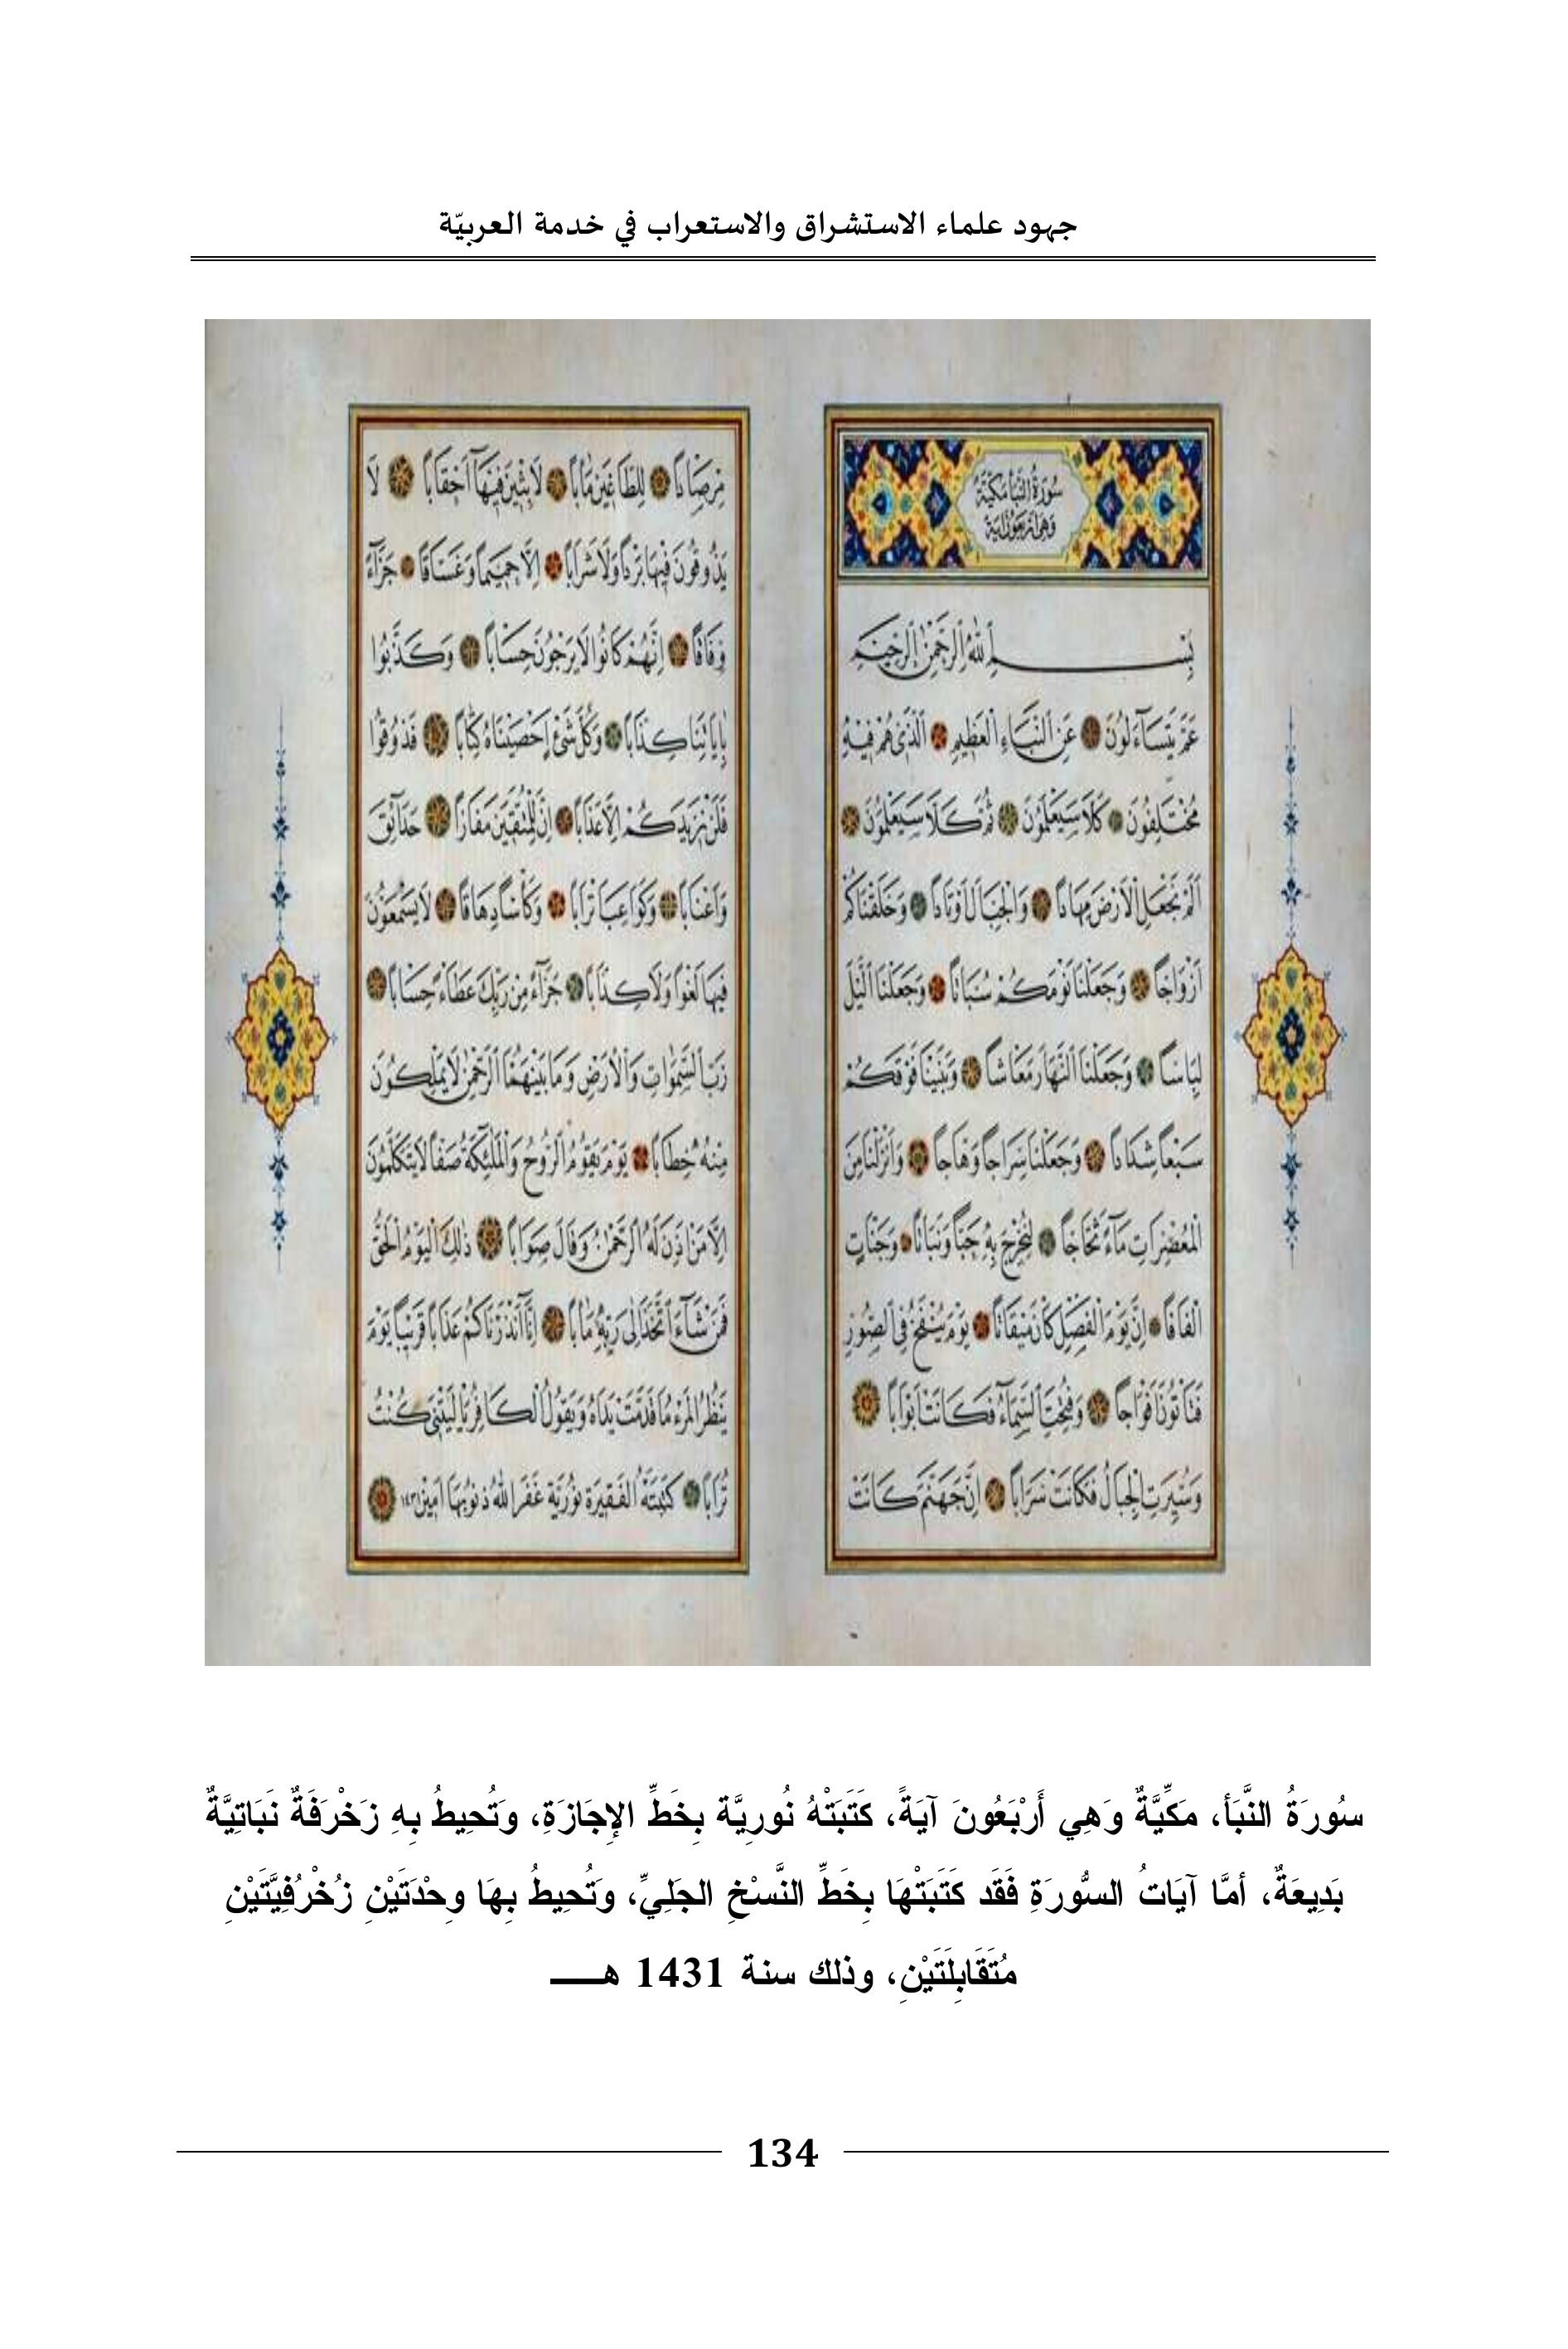 جهود علماء الاستشراق والاستعراب في خدمة العربيّة
سُورَةُ النَّبَأ مَكِّيَّةٌ
وَهِيَ اَرْبَعُونَ اٰيَة
بِسْمِ اللهِ الرَّحْمٰنِ الرَّحِيمِ
عَمَّ يَتَسَآءَلُونَ عَنِ النَّبَاِ الْعَظِيمِ اَلَّذِي هُمْ فِيهِ
مُخْتَلِفُونَ كَلَّا سَيَعْلَمُونَ ثُمَّ كَلَّا سَيَعْلَمُونَ
اَلَمْ نَجْعَلِ الْاَرْضَ مِهَادًا وَالْجِبَالَ اَوْتَادًا وَخَلَقْنَاكُمْ
اَزْوَاجًا وَجَعَلْنَا نَوْمَكُمْ سُبَاتًا وَجَعَلْنَا الَّيْلَ
لِبَاسًا وَجَعَلْنَا النَّهَارَ مَعَاشًا وَبَنَيْنَا فَوْقَكُمْ
سَبْعًا شِدَادًا وَجَعَلْنَا سِرَاجًا وَهَّاجًا وَاَنْزَلْنَا مِنَ
الْمُعْصِرَاتِ مَآءً ثَجَّاجًا لِنُخْرِجَ بِهِ حَبًّا وَنَبَاتًا وَجَنَّاتٍ
اَلْفَافًا اِنَّ يَوْمَ الْفَصْلِ كَانَ مِيقَاتًا يَوْمَ يُنْفَخُ فِي الصُّورِ
فَتَاْتُونَ اَفْوَاجًا وَفُتِحَتِ السَّمَآءُ فَكَانَتْ اَبْوَابًا
وَسُيِّرَتِ الْجِبَالُ فَكَانَتْ سَرَابًا اِنَّ جَهَنَّمَ كَانَتْ
مِرْصَادًا لِلطَّاغِينَ مَاٰبًا لَابِثِينَ فِيهَآ اَحْقَابًا لَا
يَذُوقُونَ فِيهَا بَرْدًا وَلَا شَرَابًا اِلَّا حَمِيمًا وَغَسَّاقًا جَزَآءً
وِفَاقًا اِنَّهُمْ كَانُوا لَا يَرْجُونَ حِسَابًا وَكَذَّبُوا
بِاٰيَاتِنَا كِذَّابًا وَكُلَّ شَيْءٍ اَحْصَيْنَاهُ كِتَابًا فَذُوقُوا
فَلَنْ نَزِيدَكُمْ اِلَّا عَذَابًا اِنَّ لِلْمُتَّقِينَ مَفَازًا حَدَآئِقَ
وَاَعْنَابًا وَكَوَاعِبَ اَتْرَابًا وَكَاْسًا دِهَاقًا لَا يَسْمَعُونَ
فِيهَا لَغْوًا وَلَا كِذَّابًا جَزَآءً مِنْ رَبِّكَ عَطَآءً حِسَابًا
رَبِّ السَّمٰوَاتِ وَالْاَرْضِ وَمَا بَيْنَهُمَا الرَّحْمٰنِ لَا يَمْلِكُونَ
مِنْهُ خِطَابًا يَوْمَ يَقُومُ الرُّوحُ وَالْمَلٰئِكَةُ صَفًّا لَا يَتَكَلَّمُونَ
اِلَّا مَنْ اَذِنَ لَهُ الرَّحْمٰنُ وَقَالَ صَوَابًا ذٰلِكَ الْيَوْمُ الْحَقُّ
فَمَنْ شَآءَ اتَّخَذَ اِلٰى رَبِّهِ مَاٰبًا اِنَّآ اَنْذَرْنَاكُمْ عَذَابًا قَرِيبًا يَوْمَ
يَنْظُرُ الْمَرْءُ مَا قَدَّمَتْ يَدَاهُ وَيَقُولُ الْكَافِرُ يَا لَيْتَنِي كُنْتُ
تُرَابًا كَتَبَتْهُ الْفَقِيرَة نُورِيَّة غَفَرَ اللهُ ذُنُوبَهَا اٰمِين ١٤٣١
سُورَةُ النَّبَأ، مَكِّيَّةٌ وَهِي أَرْبَعُونَ آيَةً، كَتَبَتْهُ نُورِيَّة بِخَطِّ الإِجَازَةِ، وَتُحِيطُ بِهِ زَخْرَفَةٌ نَبَاتِيَّةٌ
بَدِيعَةٌ، أمَّا آيَاتُ السُّورَةِ فَقَد كَتَبَتْهَا بِخَطِّ النَّسْخِ الجَلِيِّ، وَتُحِيطُ بِهَا وِحْدَتَيْنِ زُخْرُفِيَّتَيْنِ
مُتَقَابِلَتَيْنِ، وذلك سنة 1431 هـــــ
134